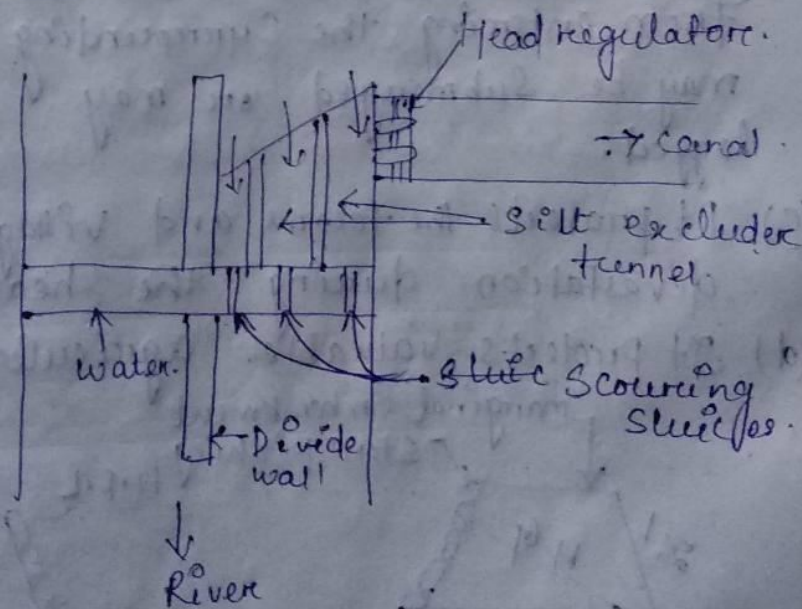 Head regulatore.
→ Canal.
Silt excluder
tunnel.
water.
Scouring
Sluices.
Divide
wall
River